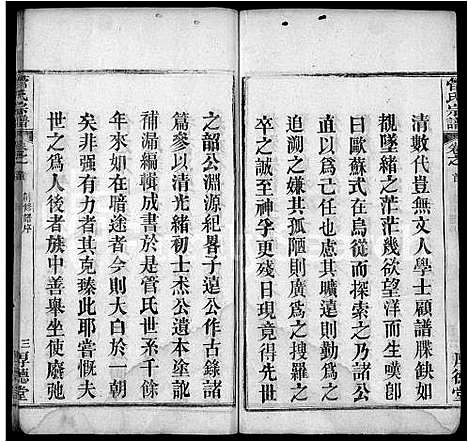 管氏宗譜
卷之首
清數代豈無文人學士顧譜牒缺如
覩墜緒之茫茫幾欲望洋而生嘆卽
曰歐蘇式在烏從而探索之乃諸公
追溯之嫌其孤陋則廣為之搜羅之
惑其曠遠則
卒之誠至神孚更殘日現
之韶公淵源紀畧子遠公作古錄諸
篇參以清光緒初士杰公遺本塗訛
補漏編輯成書於是管氏世系千餘
年來如在暗途者有以大放於一朝
矣非強有力者其克臻此耶嘗慨夫
世之為人後者族中善舉坐使廢弛
管氏宗譜
卷之首
三
厚德堂